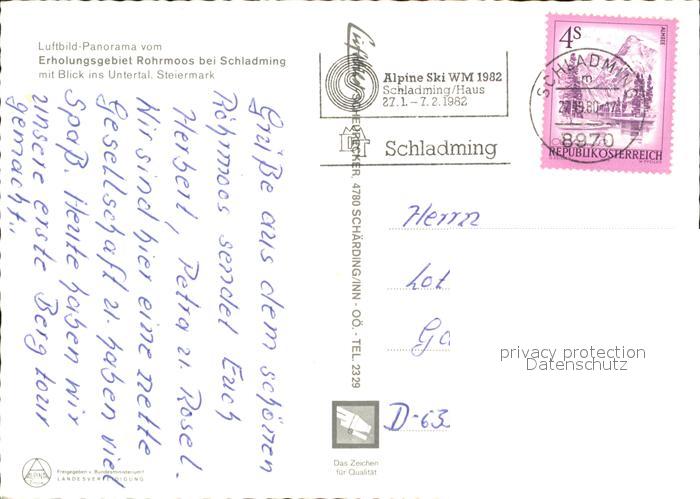 Luftbild-Panorama vom
Erholungsgebiet Rohrmoos bei Schladming
mit Blick ins Untertal, Steiermark
Grüße aus dem schönen
Röhrmoos sendet Euch
Herbert, Petra u. Rosel.
Wir sind hier eine nette
Gesellschaft u. haben viel
Spaß. Heute haben wir
unsere erste Berg tour
gemacht.
ALPINE
Freigegeben v. Bundesministerium f.
LANDESVERTEIDIGUNG
SCHEDRECKER, 4780 SCHÄRDING/INN - OÖ. - TEL. 2329
Alpine Ski WM 1982
Schladming/Haus
27.1. – 7.2.1982
Schladming
4S
ALMSEE
SCHLADMING
8970
REPUBLIK ÖSTERREICH
Herrn
Lot
Ga
D-63
privacy protection
Datenschutz
Das Zeichen
für Qualität